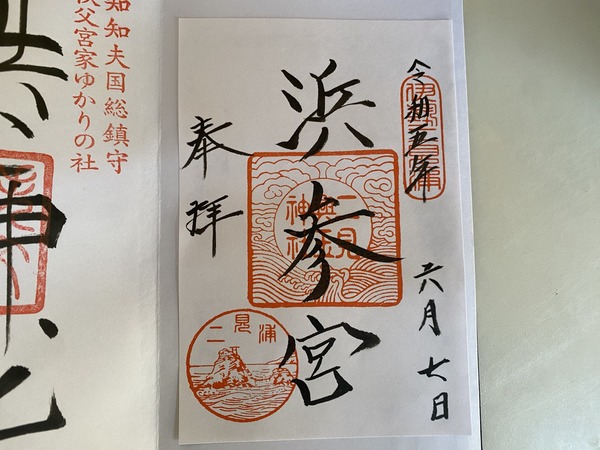 令和五年
六月七日
浜参宮
二見
興玉
神社
奉拝
二見浦
知知夫国総鎮守
秩父宮家ゆかりの社